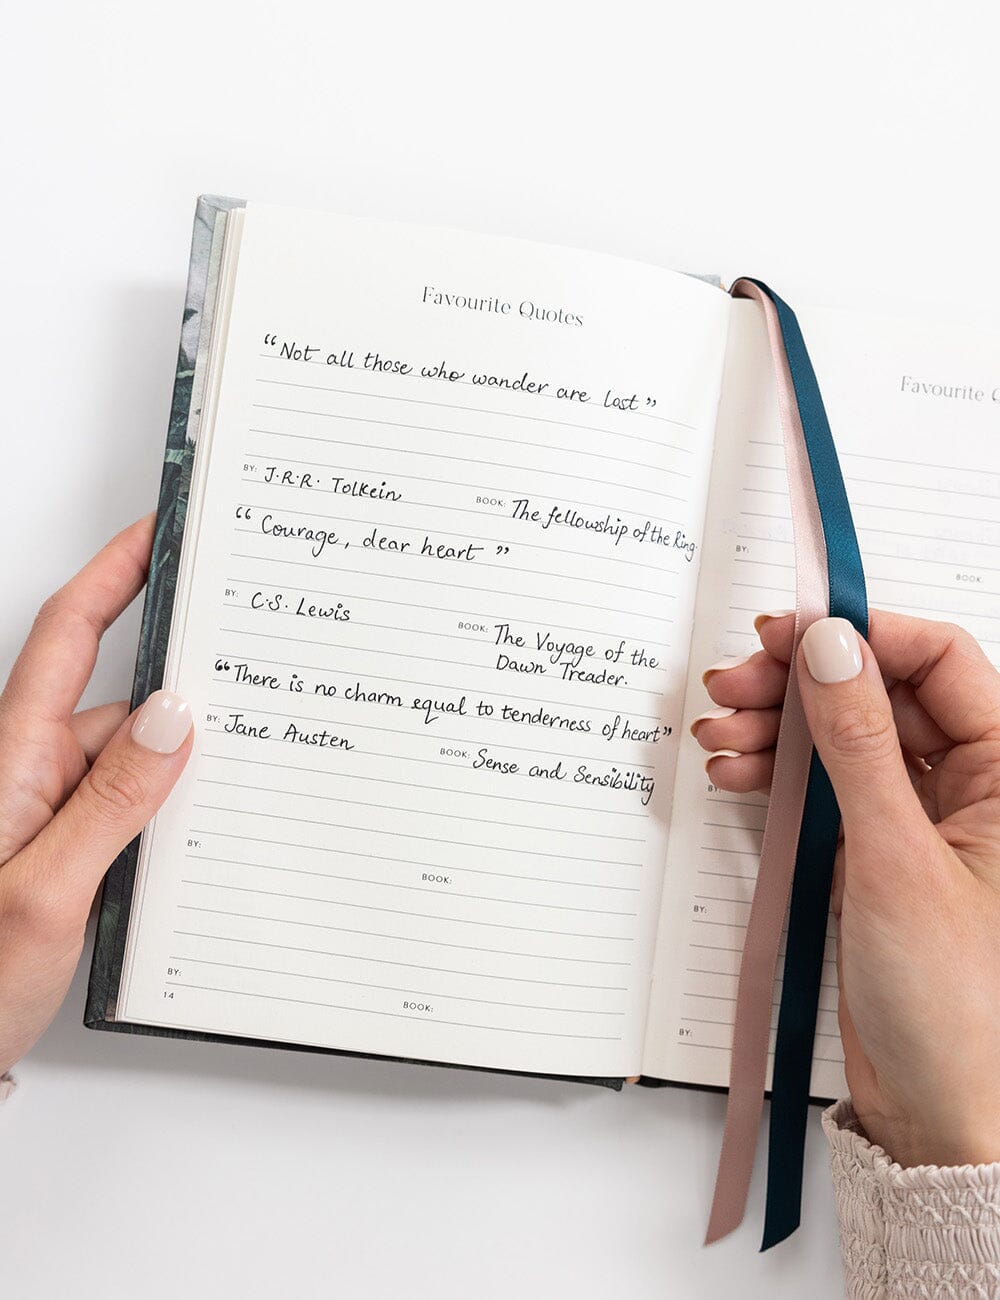 Favourite Quotes
“Not all those who wander are lost”
BY: J.R.R. Tolkein
BOOK: The fellowship of the Ring.
“Courage, dear heart”
BY: C.S. Lewis
BOOK: The Voyage of the
Dawn Treader.
“There is no charm equal to tenderness of heart”
BY: Jane Austen
BOOK: Sense and Sensibility
BY:
BOOK:
BY:
BOOK:
14
Favourite Q
BY:
BOOK
BY:
BY:
BY: